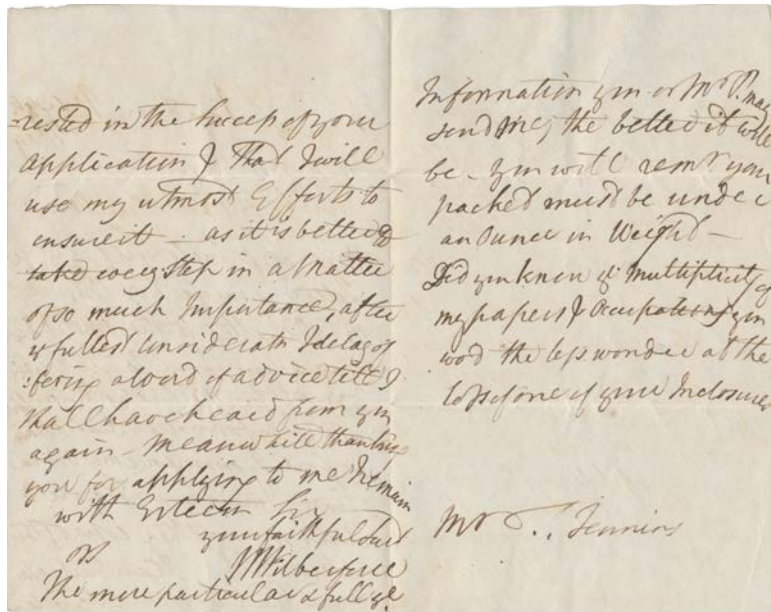 -rested in the Success of your
application & that I will
use my utmost Efforts to
ensure it - as it is better to
take every step in a Matter
of so much Importance, after
ye fullest Consideratn I delay of
:fering a word of advice till I
shall have heard from you
again - Meanwhile thanking
you for applying to me I remain
with Esteem Sir
your faithful Servt
W Wilberforce
The more particular & full ye
Information you or Mr P. may
send me, the better it will
be - you will remr your
packet must be under
an Ounce in Weight -
Did you know ye multiplicity of
my papers & Occupations you
wod the less wonder at the
loss of one of your Inclosures
Mr Jennins